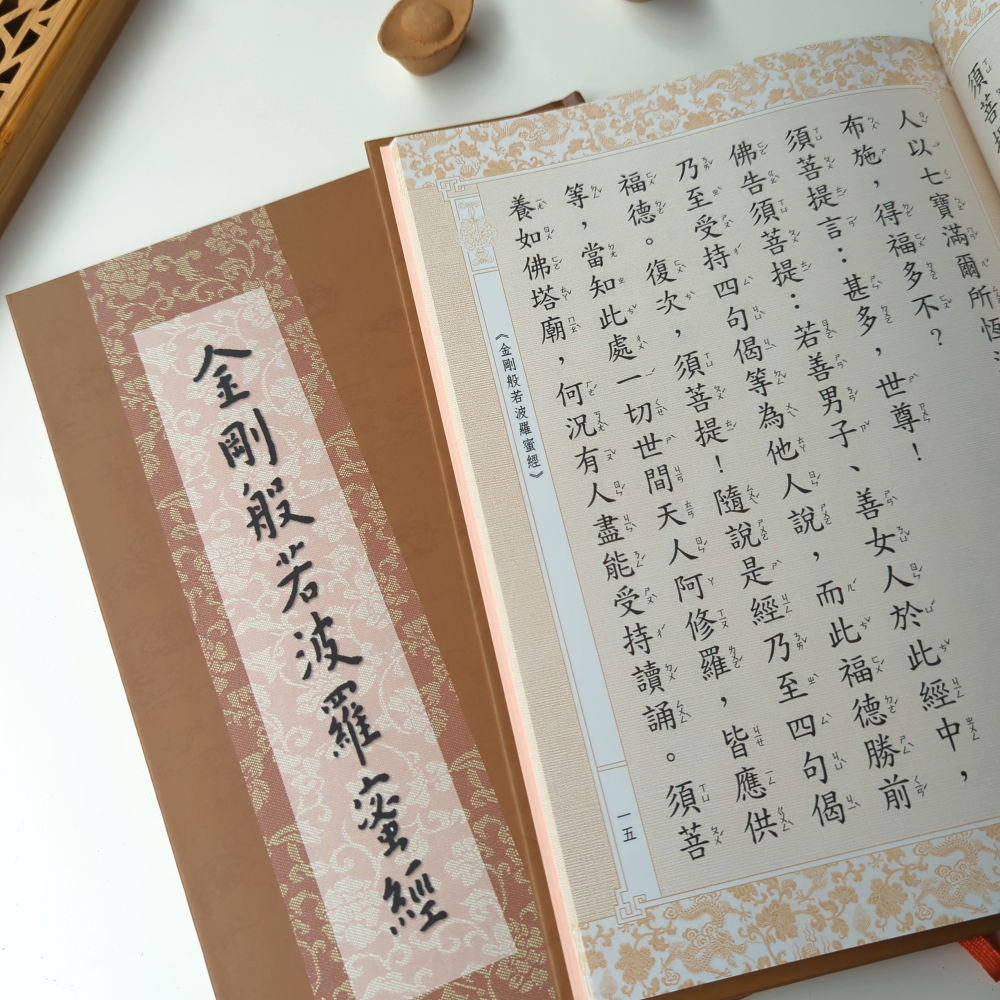 須菩
人以七寶滿爾所恆
布施，得福多不？
須菩提言：甚多，世尊！
佛告須菩提：若善男子、善女人於此經中，
乃至受持四句偈等為他人說，而此福德勝前
福德。復次，須菩提！隨說是經乃至四句偈
等，當知此處一切世間天人阿修羅，皆應供
養如佛塔廟，何況有人盡能受持讀誦。須菩
《金剛般若波羅蜜經》
一五
金剛般若波羅蜜經